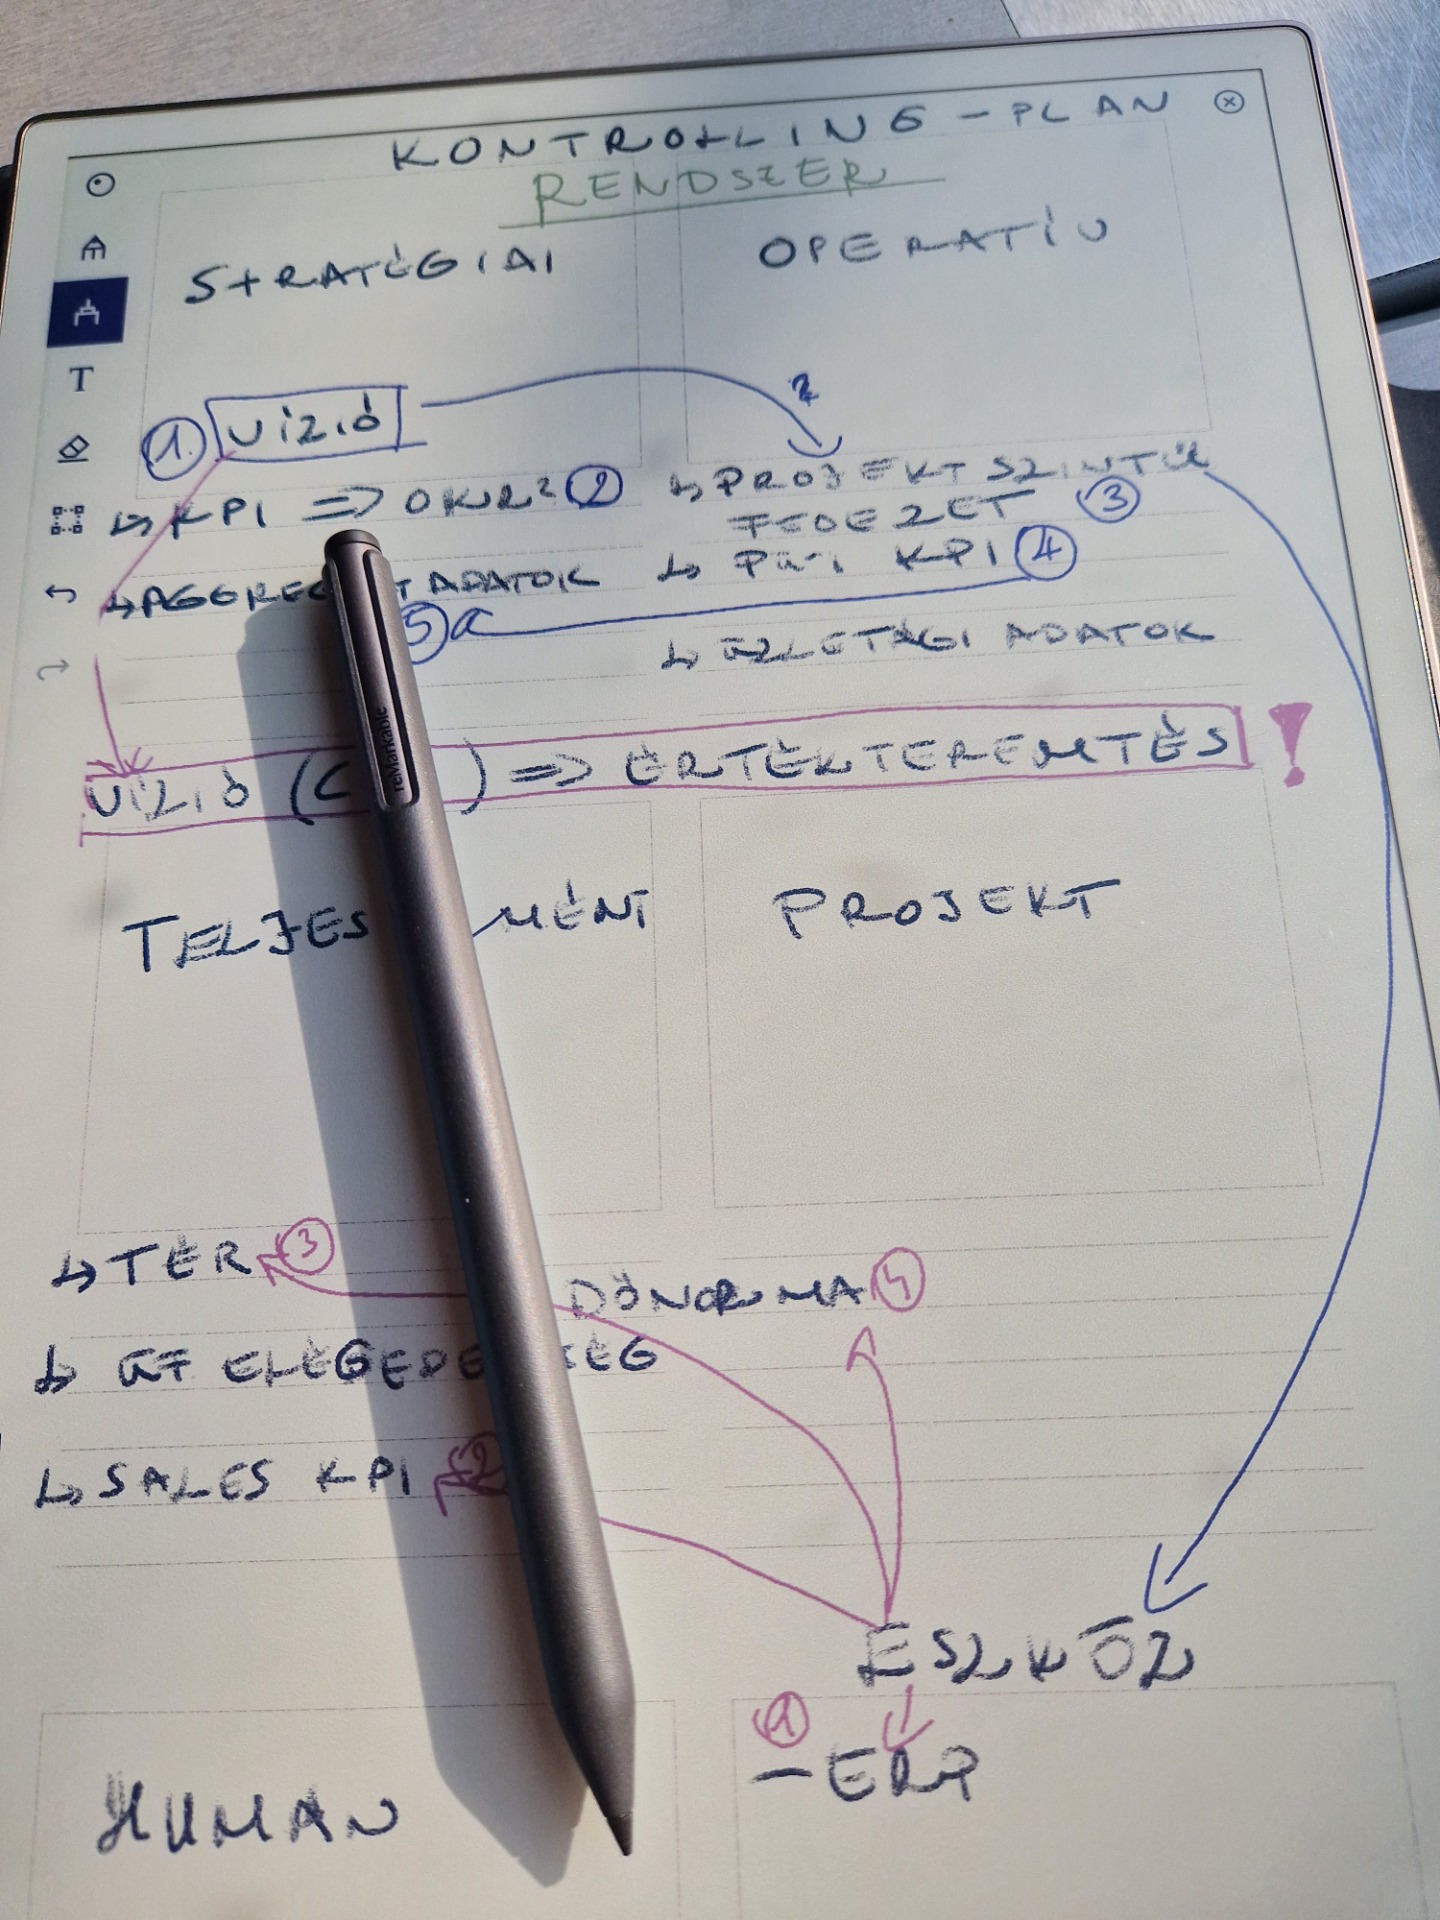 KONTROLLING - PLAN
RENDSZER
STRATÉGIAI
OPERATÍV
T
1. VÍZIÓ
2
↳ KPI => OKR? 2
↳ PROJEKT SZINTŰ
FEDEZET 3
↳ AGGREG T ADATOK
5
↳ PÜ-I KPI 4
↳ ÜZLETÁGI ADATOK
VÍZIÓ (C ) => ÉRTÉKTEREMTÉS !
reMarkable
TELJES MÉNT
PROJEKT
↳ TÉR 3
DÖNORMA 4
↳ ÜF ELÉGEDE SÉG
↳ SALES KPI 2
ESZKÖZ
1
- ERP
HUMAN